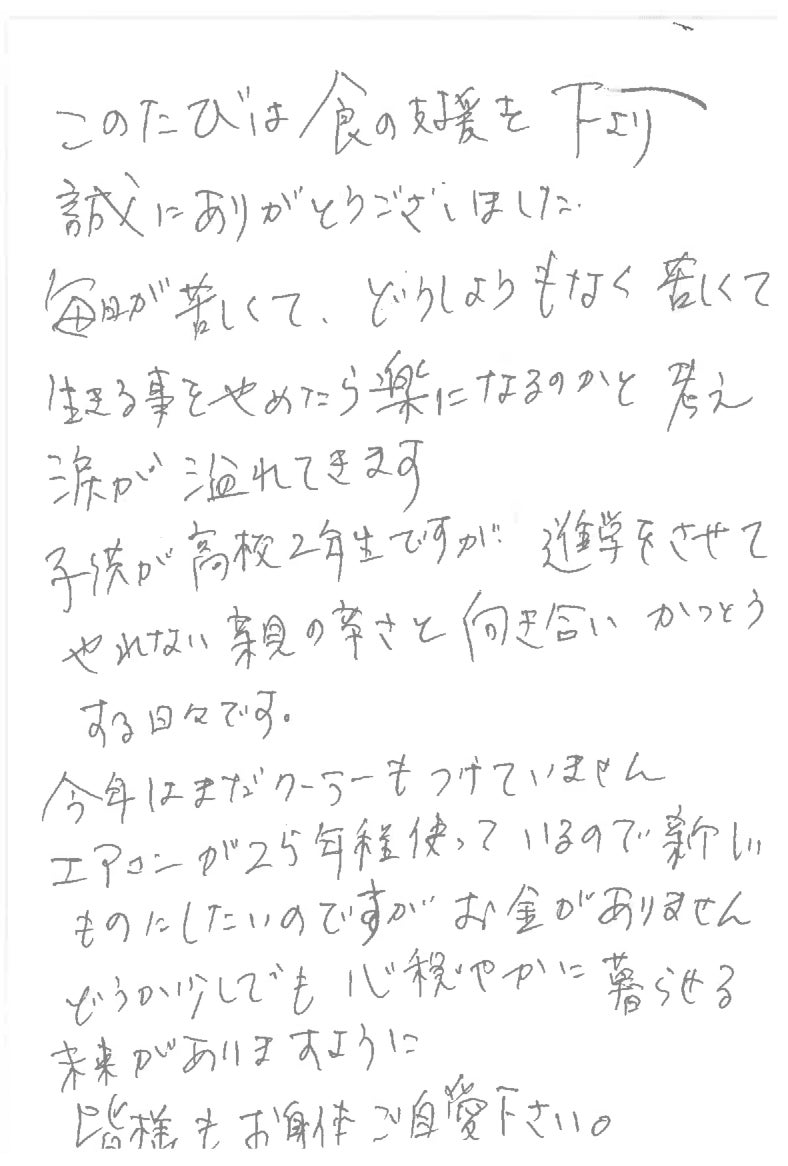 このたびは食の支援を下より
誠にありがとうございました
毎日が苦しくて、どうしようもなく苦しくて
生きる事をやめたら楽になるのかと考え
涙が溢れてきます
子供が高校2年生ですが進学をさせて
やれない親の辛さと向き合いかっとう
する日々です。
今年はまだクーラーもつけていません
エアコンが25年程使っているので新しい
ものにしたいのですがお金がありません
どうか少しでも心穏やかに暮らせる
未来がありますように
皆様もお身体ご自愛下さい。